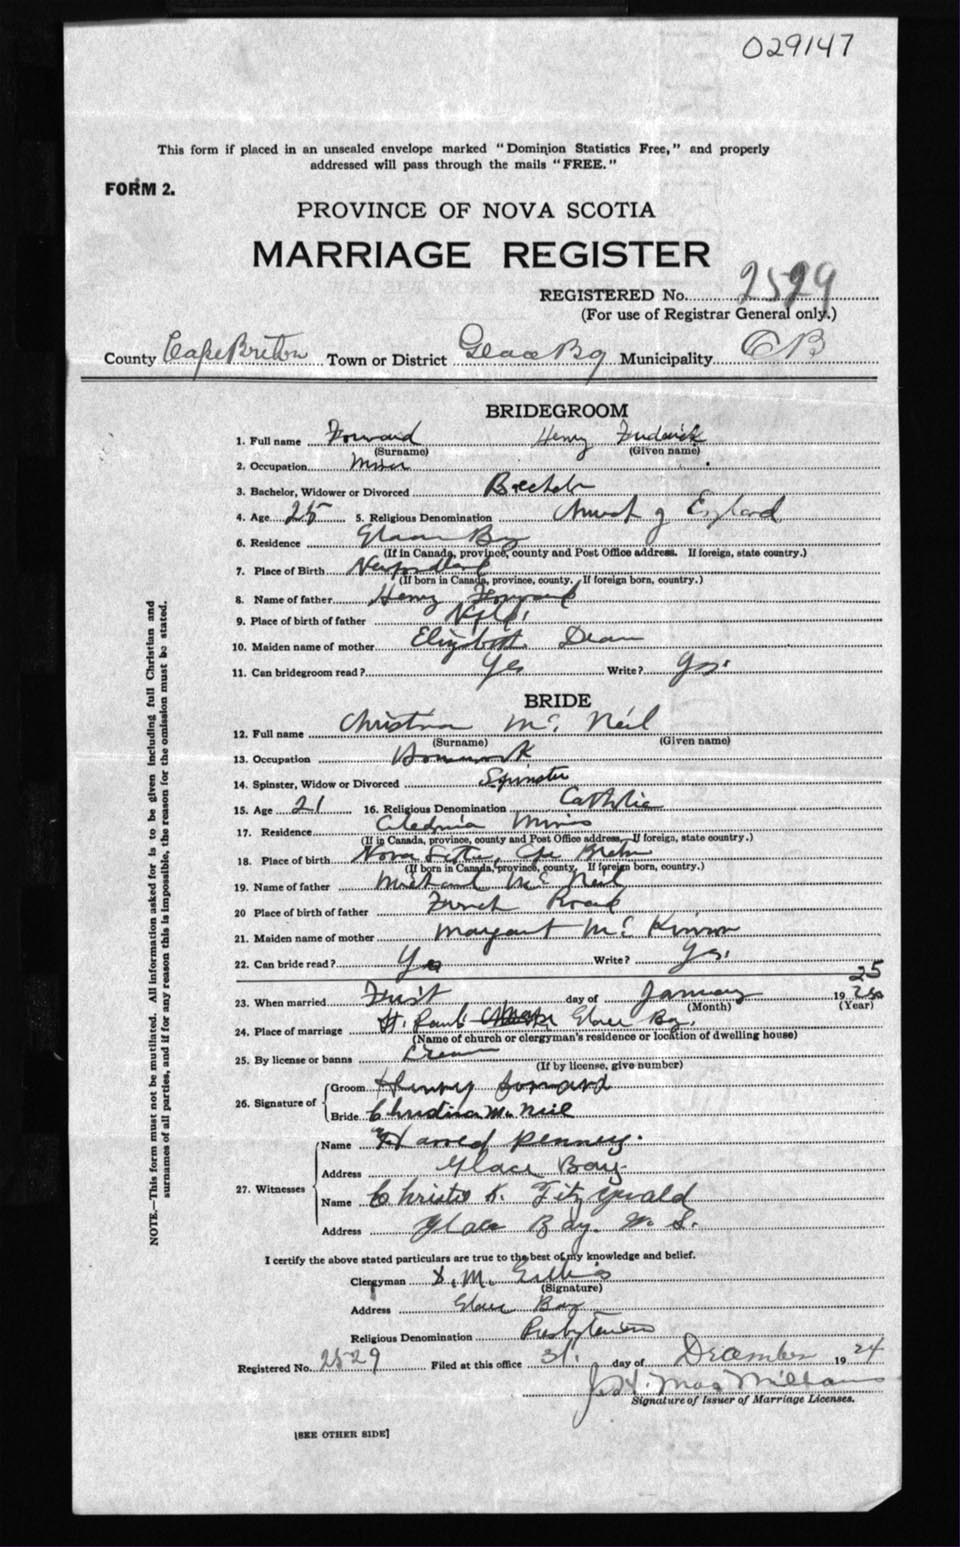 029147
This form if placed in an unsealed envelope marked "Dominion Statistics Free," and properly
addressed will pass through the mails "FREE."
FORM 2.
PROVINCE OF NOVA SCOTIA
MARRIAGE REGISTER
REGISTERED No. 2529
(For use of Registrar General only.)
County Cape Breton Town or District Glace Bay Municipality CB
BRIDEGROOM
1. Full name Forward Henry Frederick
(Surname) (Given name)
2. Occupation Miner
3. Bachelor, Widower or Divorced Bachelor
4. Age 25 5. Religious Denomination Church of England
6. Residence Glace Bay
(If in Canada, province, county and Post Office address. If foreign, state country.)
7. Place of Birth Newfoundland
(If born in Canada, province, county. If foreign born, country.)
8. Name of father Henry Forward
9. Place of birth of father Nfld.
10. Maiden name of mother Elizabeth Dean
11. Can bridegroom read? Yes Write? Yes.
BRIDE
12. Full name Christina Mc Neil
(Surname) (Given name)
13. Occupation Housework
14. Spinster, Widow or Divorced Spinster
15. Age 21 16. Religious Denomination Catholic
17. Residence Caledonia Mines
(If in Canada, province, county and Post Office address. If foreign, state country.)
18. Place of birth Nova Scotia, Cape Breton
(If born in Canada, province, county. If foreign born, country.)
19. Name of father Michael Mc Neil
20 Place of birth of father French Road
21. Maiden name of mother Margaret Mc Kinnon
22. Can bride read? Yes Write? Yes.
25
23. When married First day of January 19
(Month) (Year)
24. Place of marriage St. Paul's Glace Bay.
(Name of church or clergyman's residence or location of dwelling house)
25. By license or banns License
(If by license, give number)
26. Signature of Groom Henry Forward
Bride Christina Mc Neil
27. Witnesses Name Harred Penney.
Address Glace Bay
Name Christie K. Fitzgerald
Address Glace Bay. N. S.
I certify the above stated particulars are true to the best of my knowledge and belief.
Clergyman D. M. Gillis
(Signature)
Address Glace Bay
Religious Denomination Presbyterian
Registered No. 2529 Filed at this office 31. day of December 19 24
MacMillan
Signature of Issuer of Marriage Licenses.
[SEE OTHER SIDE]
NOTE.—This form must not be mutilated. All information asked for is to be given including full Christian and
surnames of all parties, and if for any reason this is impossible, the reason for the omission must be stated.